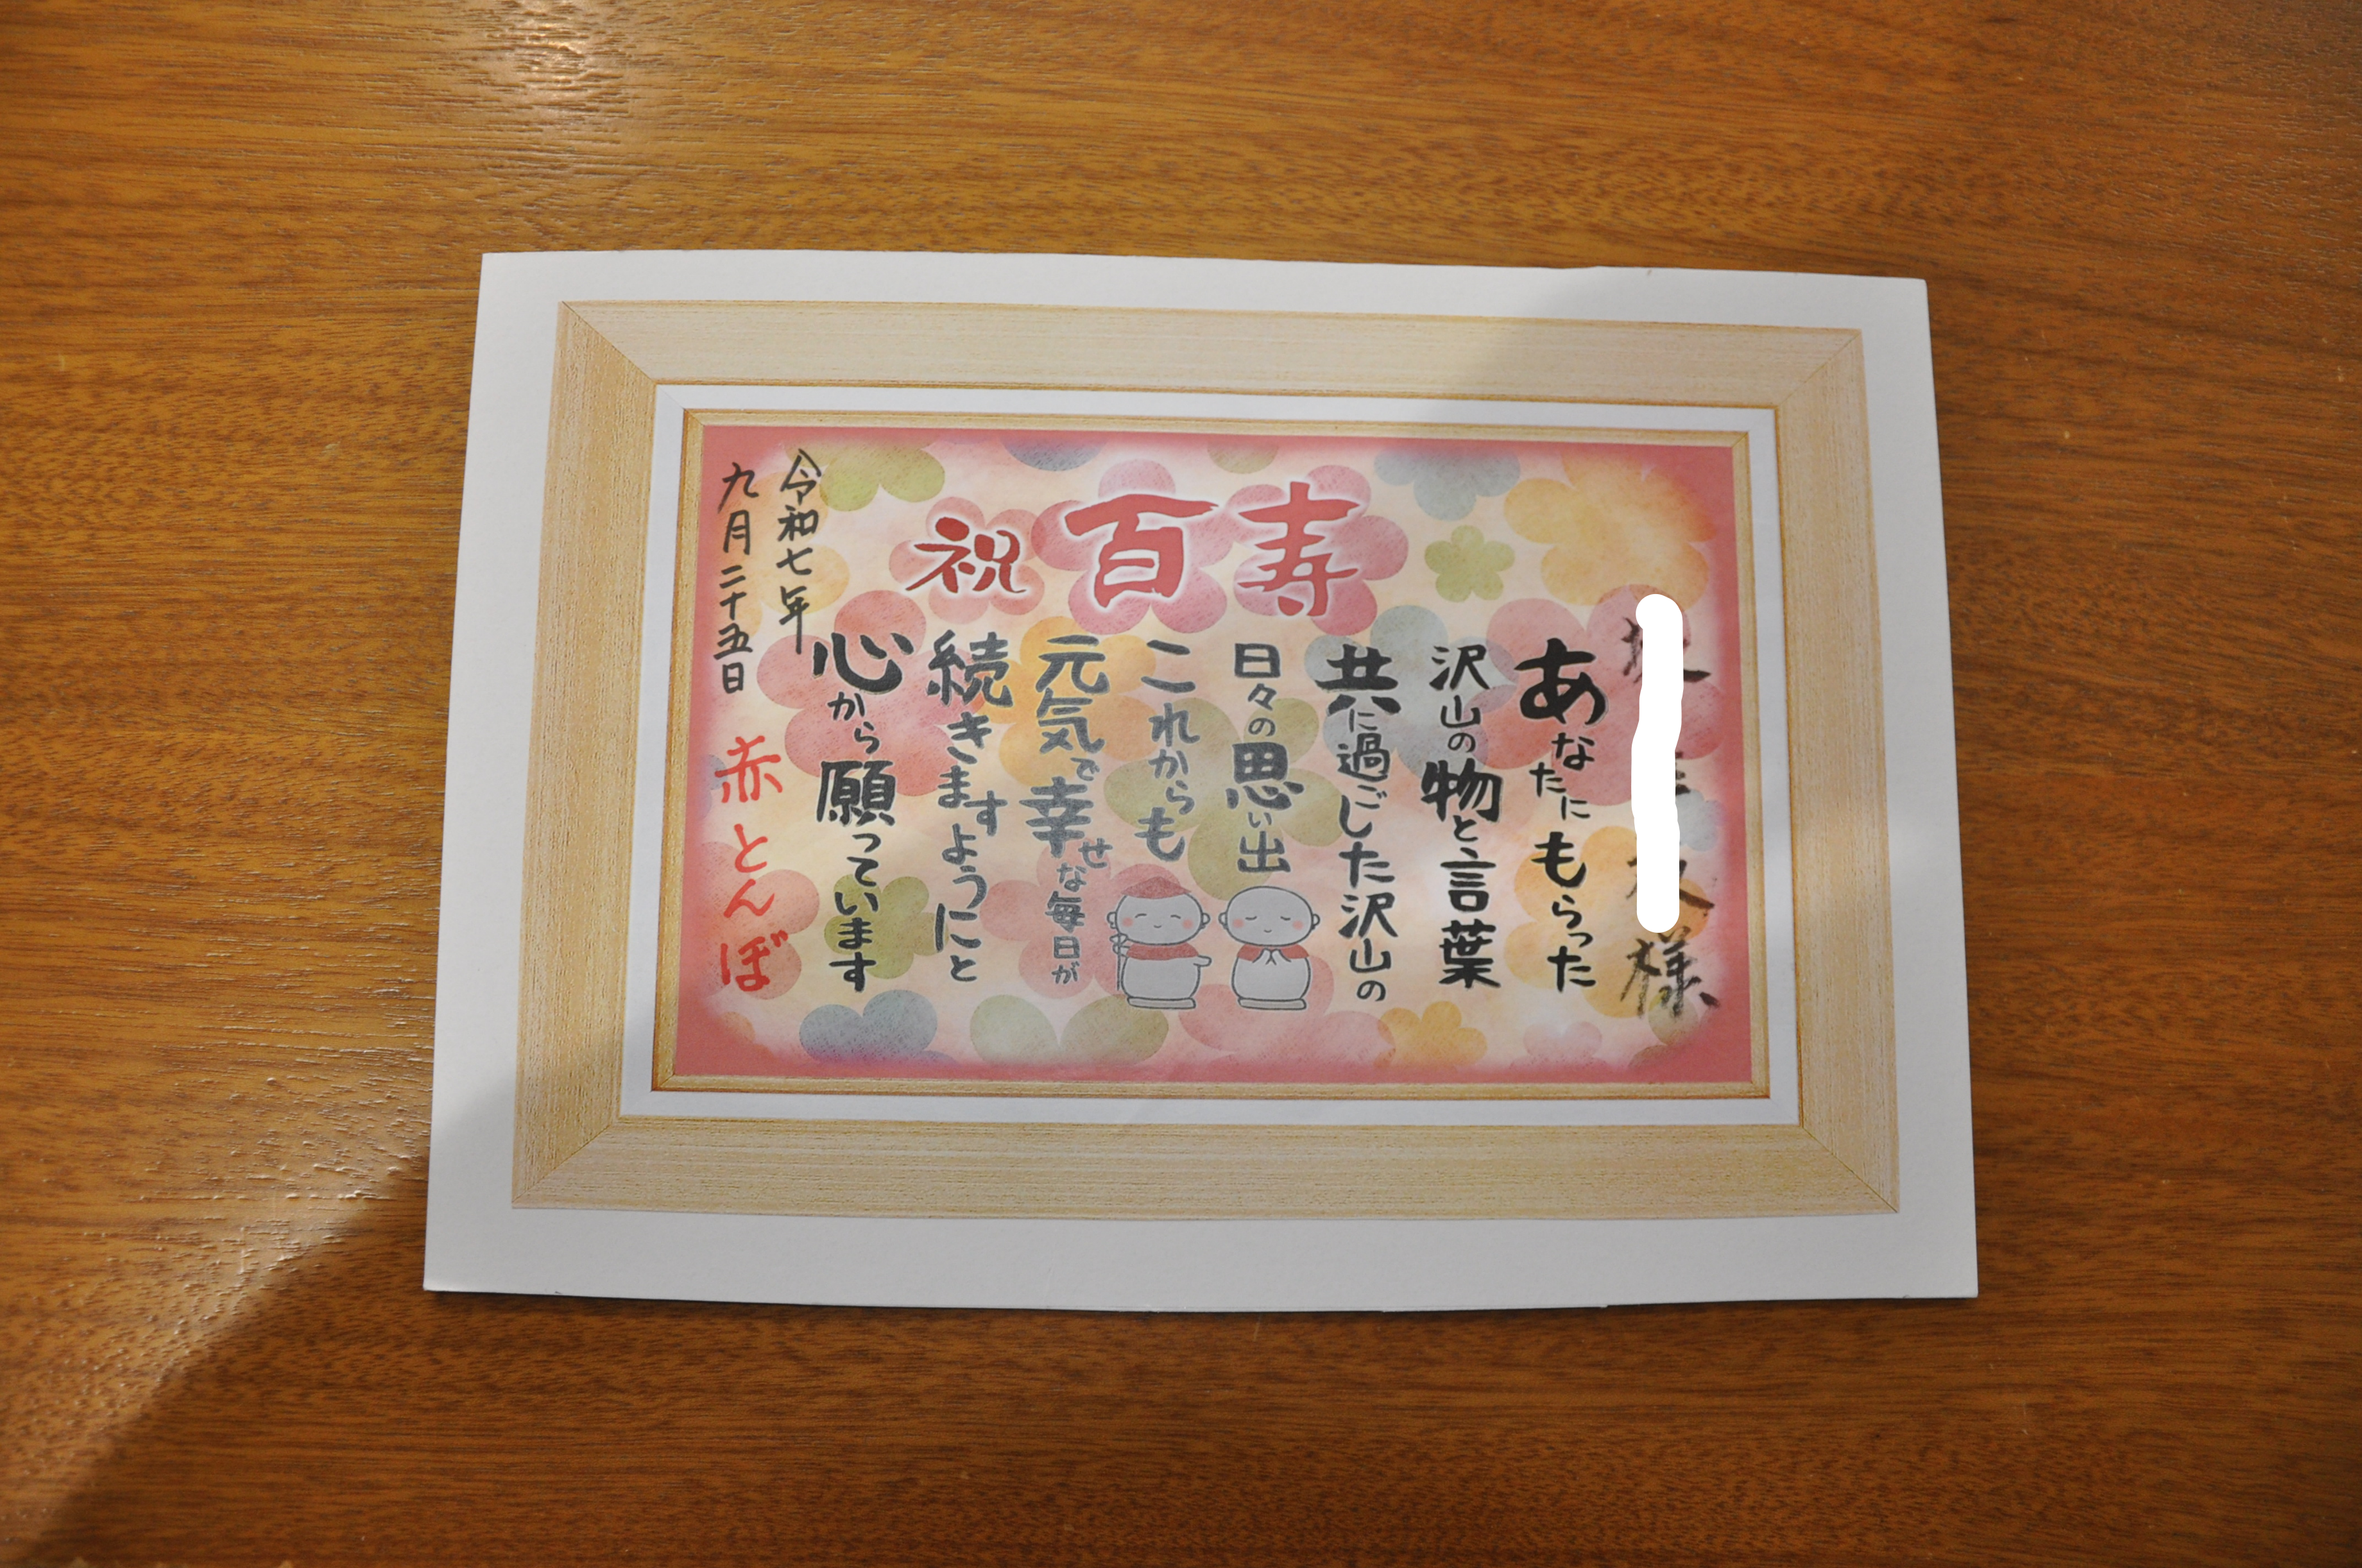 祝 百寿
様
あなたにもらった
沢山の物と言葉
共に過ごした沢山の
日々の思い出
これからも
元気で幸せな毎日が
続きますようにと
心から願っています
令和七年
九月二十五日
赤とんぼ